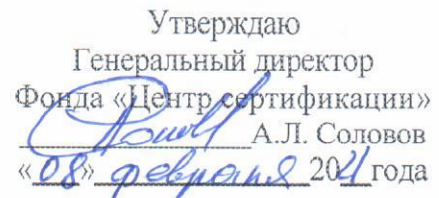 Утверждаю
Генеральный директор
Фонда «Центр сертификации»
А.Л. Соловов
«08» февраля 2021 года